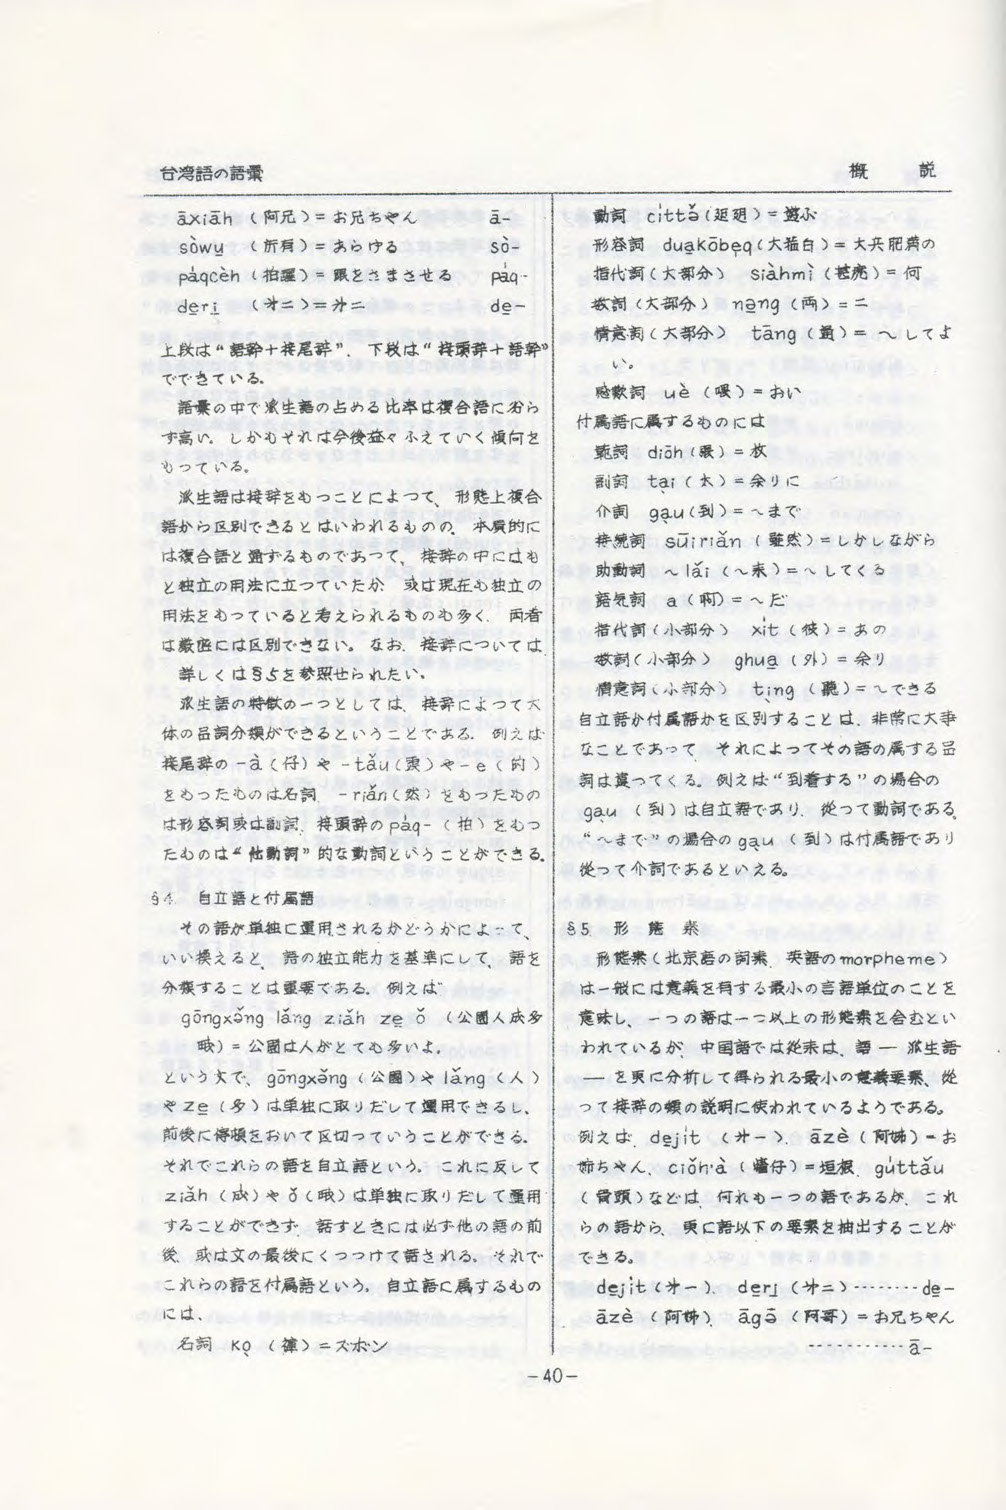 台湾語の語彙
概 説
āxiāh (阿兄)=お兄ちゃん ā-
sòwụ (所有)=あらゆる sò-
pa̍qcèh (拍醒)=眼をさまさせる pa̍q-
dẹrị (才二)=才二 dẹ-
上段は“語幹+接尾辞”、下段は“接頭辞+語幹”
でできている。
語彙の中で派生語の占める比率は複合語に劣ら
ず高い。しかもそれは今後益々ふえていく傾向を
もっている。
派生語は接辞をもつことによつて、形態上複合
語から区別できるとはいわれるものの、本質的に
は複合語と通ずるものであつて、接辞の中にはも
と独立の用法に立っていたか、或は現在も独立の
用法をもっていると考えられるものも多く、両者
は厳密には区別できない。なお、接辞については
詳しくは§5を参照せられたい。
派生語の特徴の一つとしては、接辞によつて大
体の品詞分類ができるということである。例えば
接尾辞の -à (仔) や -tǎu (頭) や -e (的)
をもったものは名詞、-riǎn (然) をもったもの
は形容詞或は副詞、接頭辞の pa̍q- (拍) をもつ
たものは“他動詞”的な動詞ということができる。
§4. 自立語と付属語
その語が単独に運用されるかどうかによって、
いい換えると、語の独立能力を基準にして、語を
分類することは重要である。例えば
gōngxə̌ng lǎng ziǎh zẹ ǒ (公園人成多
哦)=公園は人がとても多いよ。
という文で、gōngxə̌ng (公園) や lǎng (人)
や zẹ (多) は単独に取りだして運用できるし、
前後に停頓をおいて区切っていうことができる。
それでこれらの語を自立語という。これに反して
ziǎh (成) や ǒ (哦) は単独に取りだして運用
することができず、話すときには必ず他の語の前
後、或は文の最後にくっつけて話される。それで
これらの語を付属語という。自立語に属するもの
には、
名詞 kọ (褲)=ズボン
動詞 ci̍ttə̌ (𨑨迌)=遊ぶ
形容詞 duạkōbẹq (大箍白)=大兵肥満の
指代詞 (大部分) siàhmì (甚麽)=何
数詞 (大部分) nə̣ng (両)=二
情意詞 (大部分) tāng (通)=~してよ
い。
感歎詞 ụè (喂)=おい
付属語に属するものには
範詞 diōh (張)=枚
副詞 tại (太)=余りに
介詞 gạu (到)=~まで
接続詞 sūiriǎn (雖然)=しかしながら
助動詞 ~lái (~来)=~してくる
語気詞 a (啊)=~だ
指代詞 (小部分) xi̍t (彼)=あの
数詞 (小部分) ghuạ (外)=余り
情意詞 (小部分) tịng (聽)=~できる
自立語か付属語かを区別することは、非常に大事
なことであって、それによってその語の属する品
詞は違ってくる。例えば“到着する”の場合の
gạu (到) は自立語であり、従つて動詞である。
“~まで”の場合の gạu (到) は付属語であり
従って介詞であるといえる。
§5. 形 態 素
形態素 (北京語の詞素、英語の morpheme)
は一般には意義を有する最小の言語単位のことを
意味し、一つの語は一つ以上の形態素を含むとい
われているが、中国語では従来は、語 ― 派生語
― を更に分析して得られる最小の意義要素、従
つて接辞の類の説明に使われているようである。
例えば、dẹji̍t (才一)、āzè (阿姉)=お
姉ちゃん、ciǒh·à (牆仔)=垣根、gu̍ttǎu
(骨頭) などは、何れも一つの語であるが、これ
らの語から、更に語以下の要素を抽出することが
できる。
dẹji̍t (才一)、dẹrị (才二)………dẹ-
āzè (阿姉)、āgə̄ (阿哥)=お兄ちゃん
…………ā-
-40-